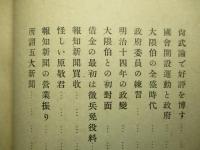 尚武論で好評を博す
國會開設運動と政府
大隈伯の全盛時代
政府委員の練習
明治十四年の政變
大隈伯との初對面
借金の最初は徵兵免役料
報知新聞買收
怪しい原敬君
報知新聞の營業振り
所謂五大新聞